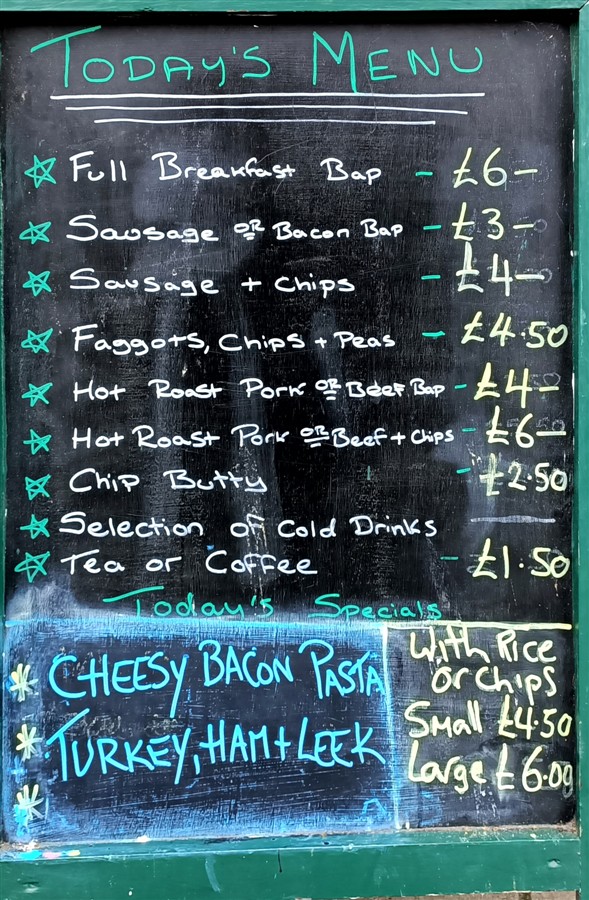 Today's Menu
Full Breakfast Bap - £6-
Sausage or Bacon Bap - £3-
Sausage + Chips - £4-
Faggots, Chips + Peas - £4.50
Hot Roast Pork or Beef Bap - £4-
Hot Roast Pork or Beef + Chips - £6-
Chip Butty - £2.50
Selection of Cold Drinks
Tea or Coffee - £1.50
Today's Specials
CHEESY BACON PASTA
TURKEY, HAM + LEEK
With Rice
or chips
Small £4.50
Large £6.00